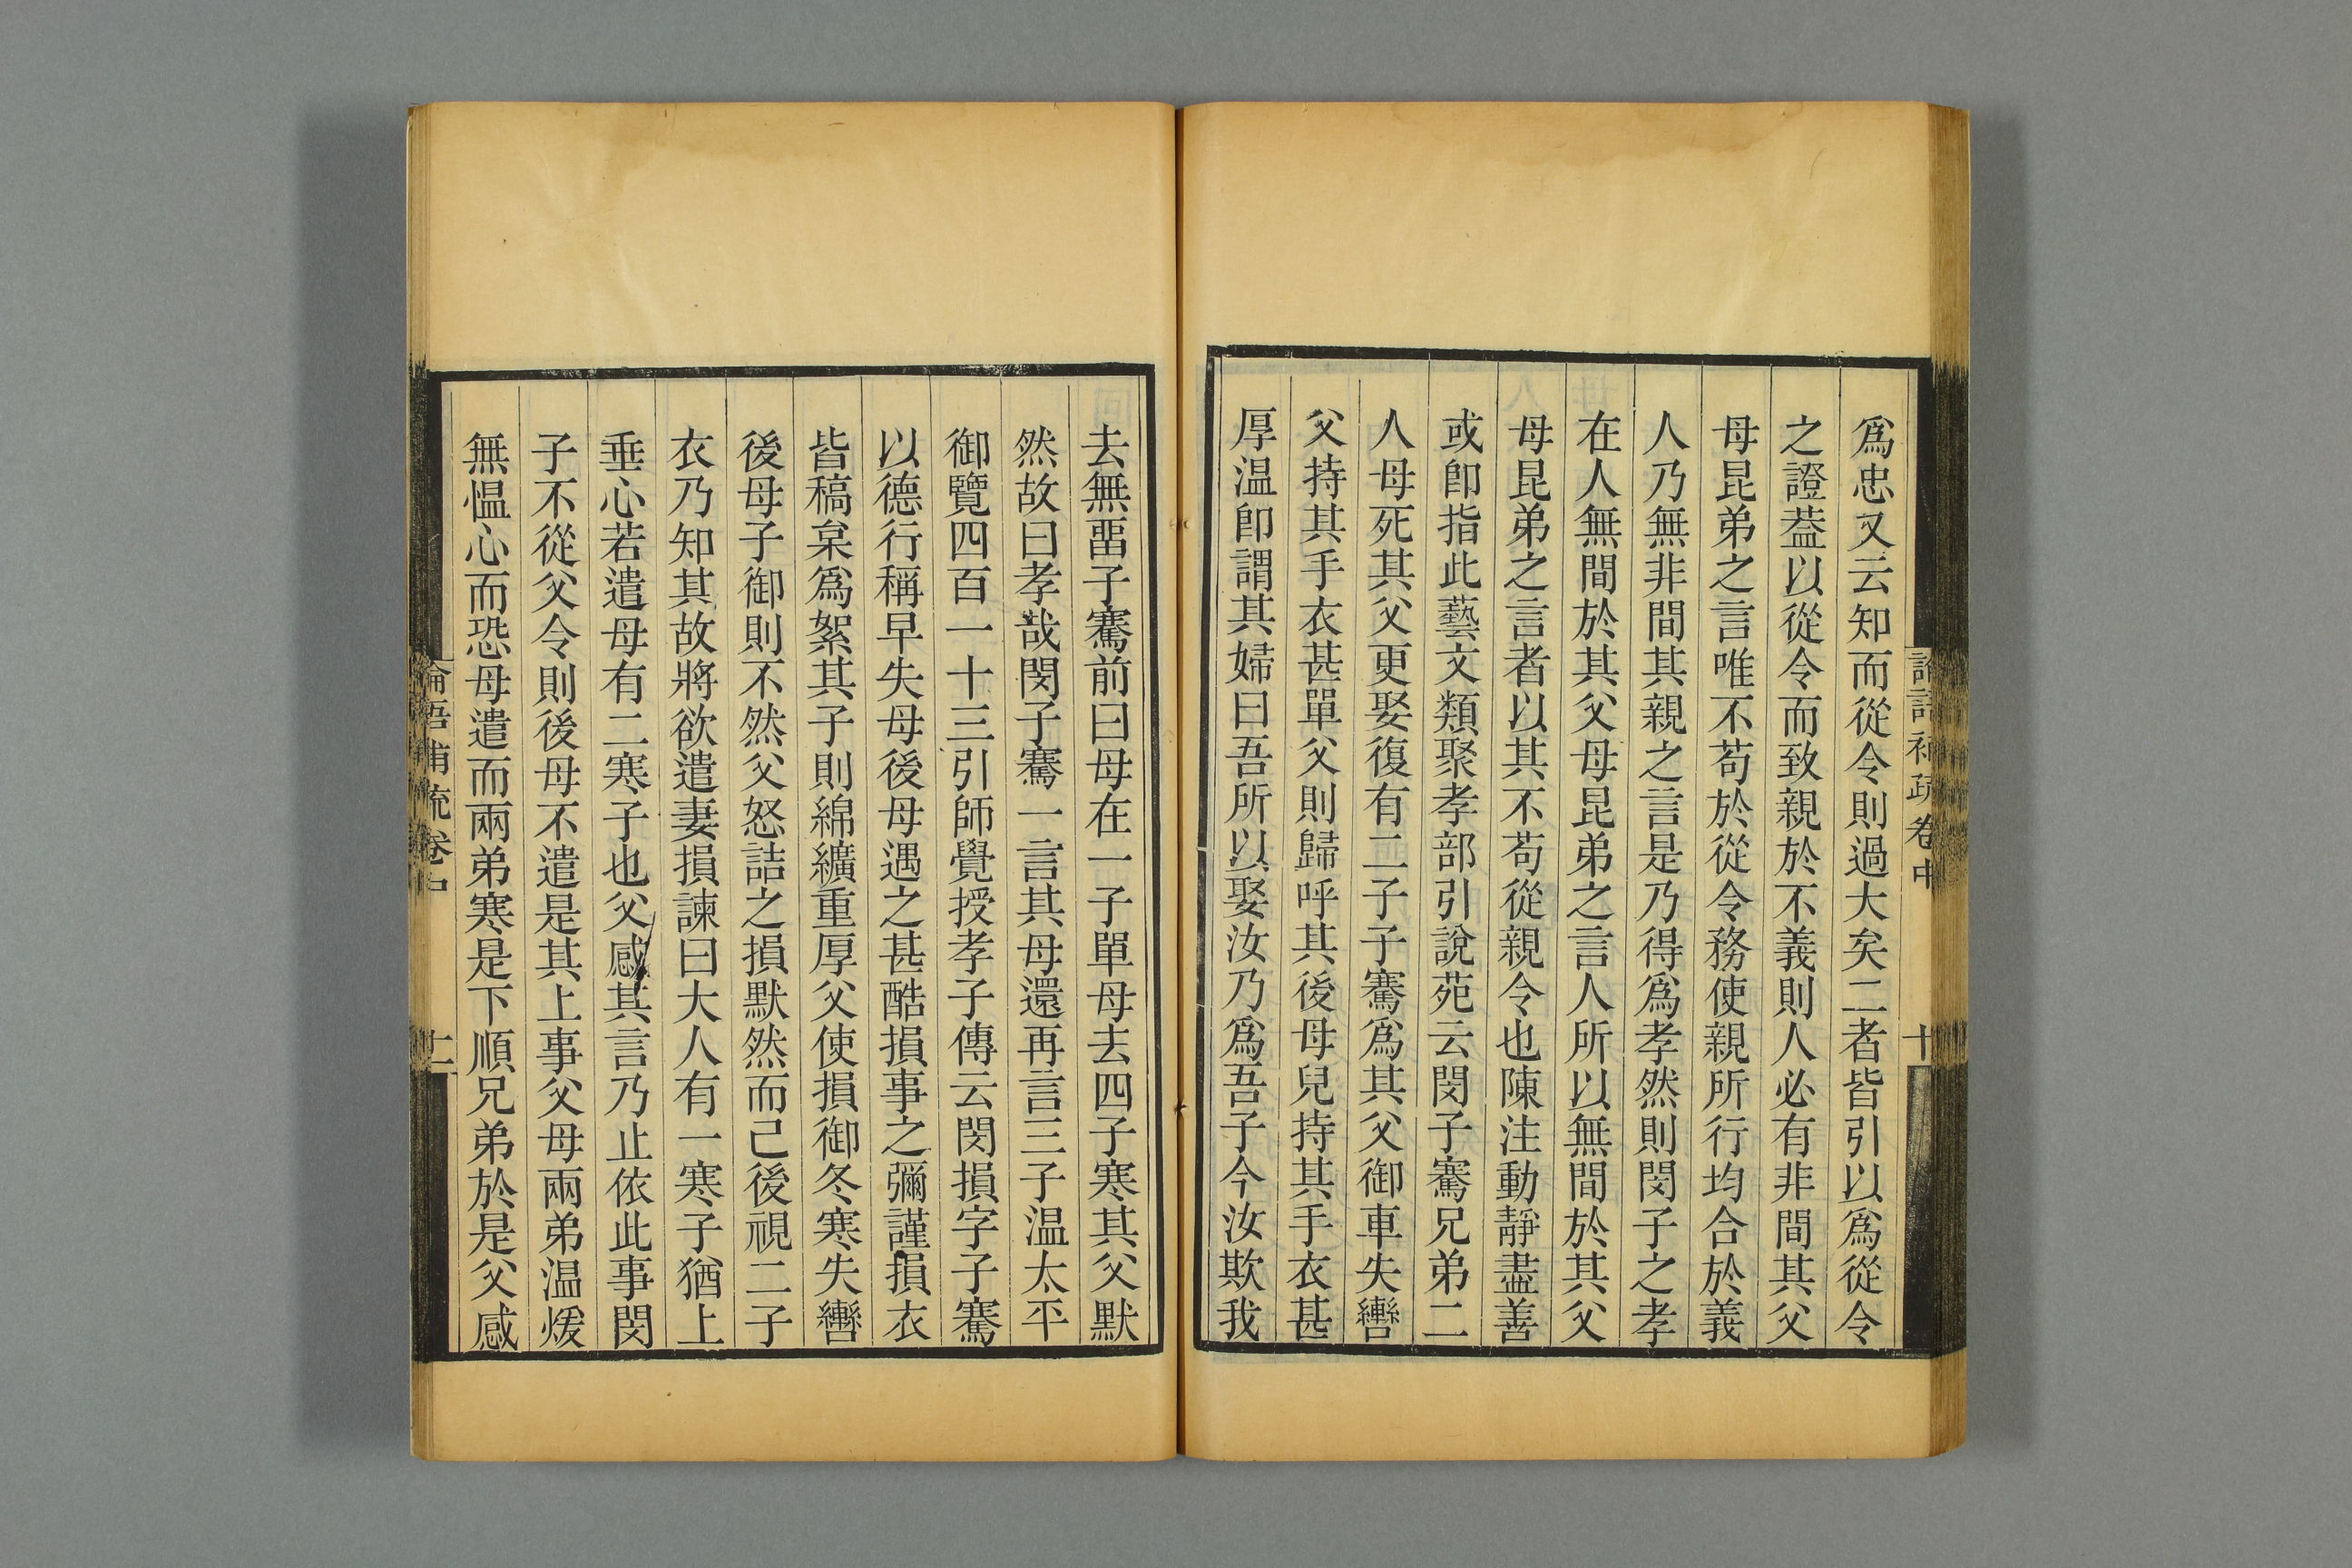 論語補疏卷中
十
爲忠又云知而從令則過大矣二者皆引以爲從令
之證葢以從令而致親於不義則人必有非間其父
母昆弟之言唯不苟於從令務使親所行均合於義
人乃無非間其親之言是乃得爲孝然則閔子之孝
在人無間於其父母昆弟之言人所以無間於其父
母昆弟之言者以其不苟從親令也陳注動靜盡善
或卽指此藝文類聚孝部引說苑云閔子騫兄弟二
人母死其父更娶復有二子子騫爲其父御車失轡
父持其手衣甚單父則歸呼其後母兒持其手衣甚
厚温卽謂其婦曰吾所以娶汝乃爲吾子今汝欺我
去無畱子騫前曰母在一子單母去四子寒其父默
然故曰孝哉閔子騫一言其母還再言三子温太平
御覽四百一十三引師覺授孝子傳云閔損字子騫
以德行稱早失母後母遇之甚酷損事之彌謹損衣
皆稿枲爲絮其子則綿纊重厚父使損御冬寒失轡
後母子御則不然父怒詰之損默然而已後視二子
衣乃知其故將欲遣妻損諫曰大人有一寒子猶上
垂心若遣母有二寒子也父感其言乃止依此事閔
子不從父令則後母不遣是其上事父母兩弟温煖
無愠心而恐母遣而兩弟寒是下順兄弟於是父感
論語補疏卷中
十一